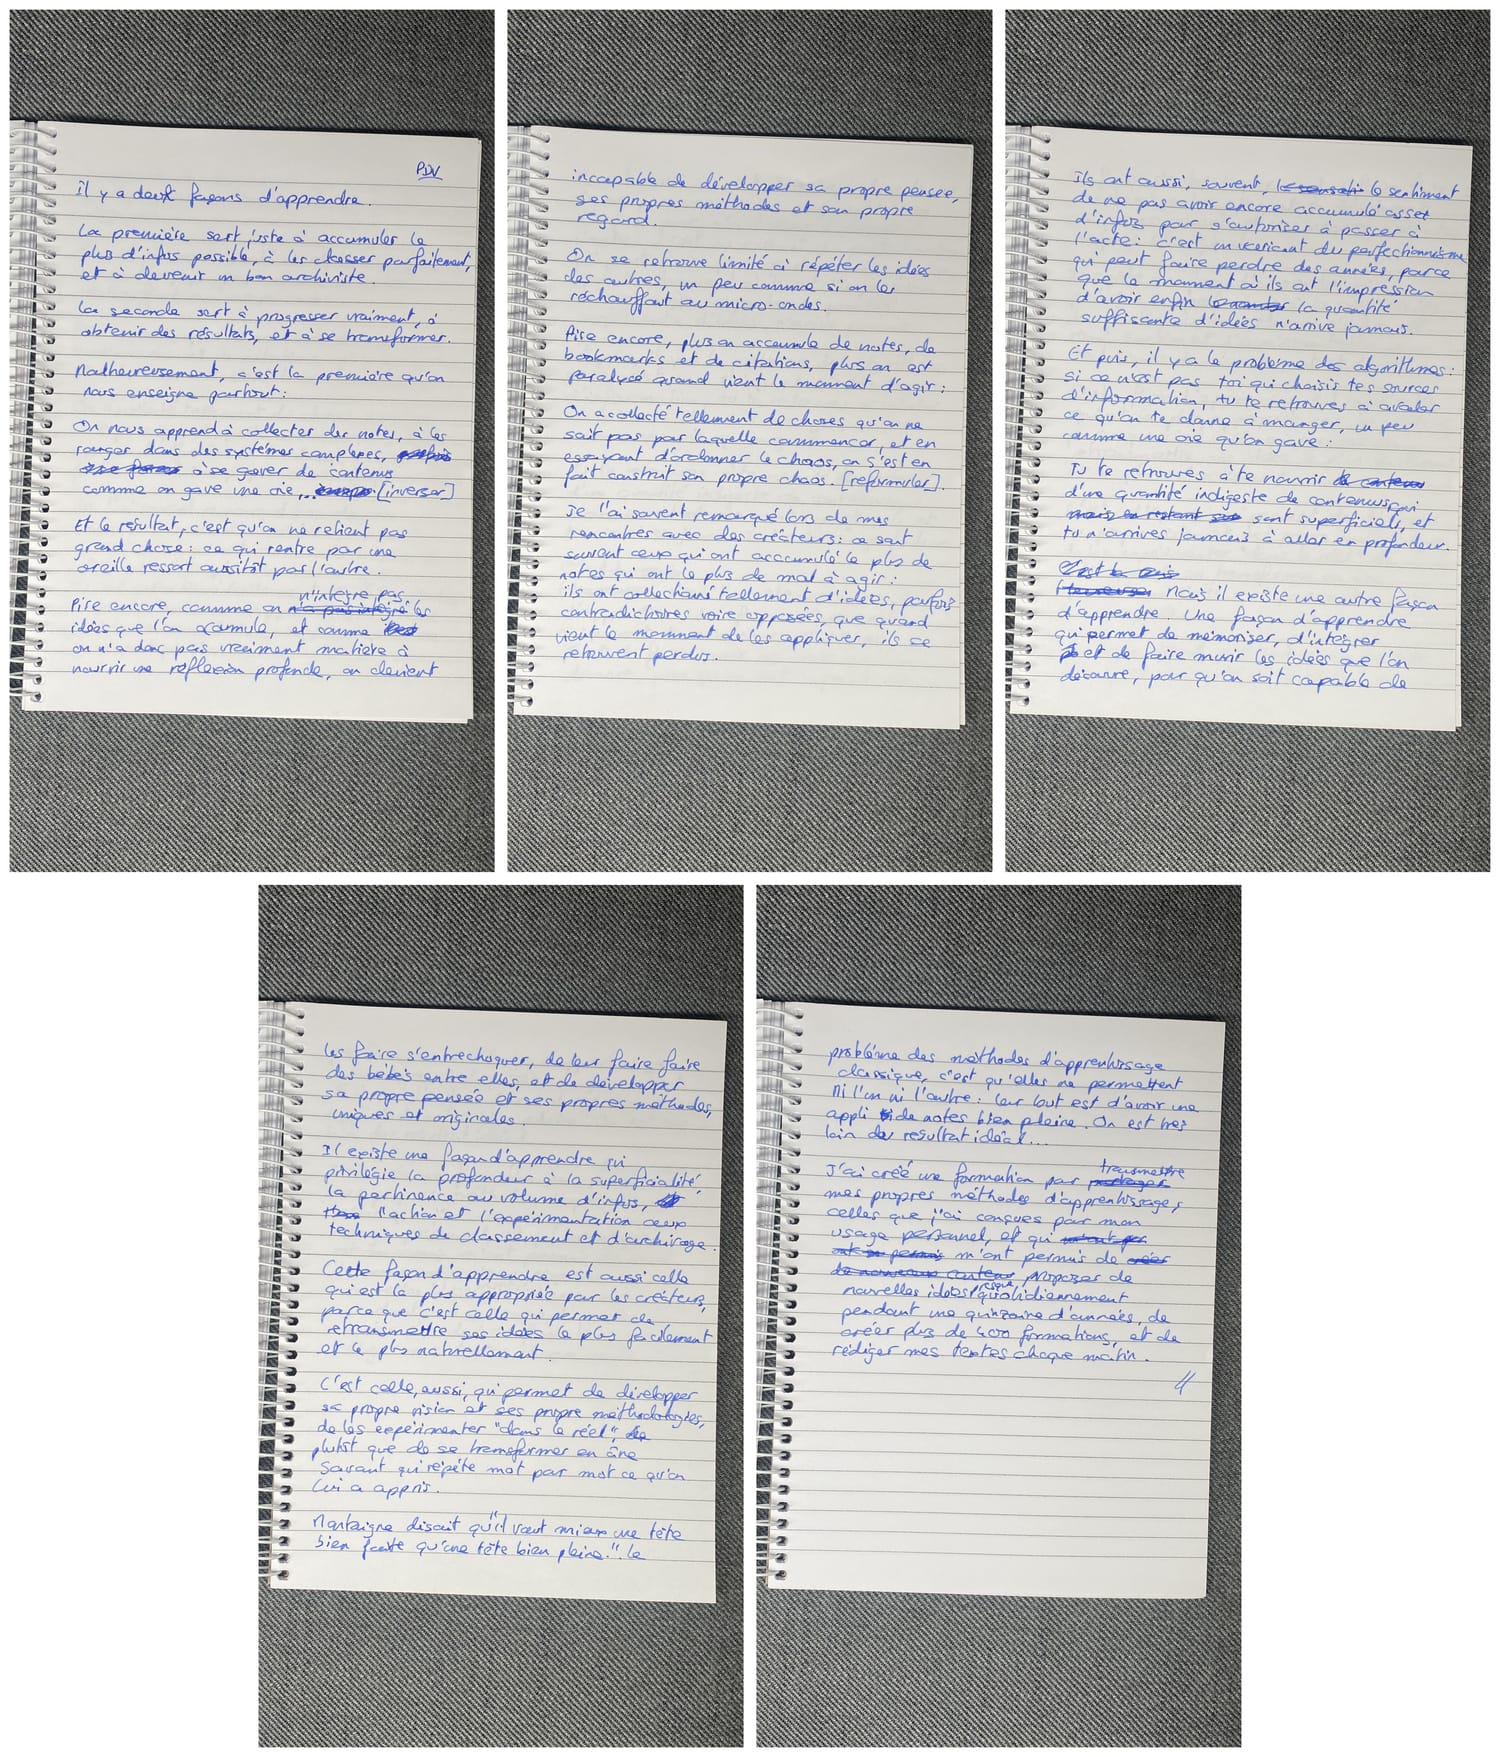 PDV
Il y a deux façons d'apprendre.
La première sert juste à accumuler le
plus d'infos possible, à les classer parfaitement,
et à devenir un bon archiviste.
La seconde sert à progresser vraiment, à
obtenir des résultats, et à se transformer.
Malheureusement, c'est la première qu'on
nous enseigne partout :
On nous apprend à collecter des notes, à les
ranger dans des systèmes complexes,
à se gaver de contenus
comme on gave une oie... [inverser]
Et le résultat, c'est qu'on ne retient pas
grand chose : ce qui rentre par une
oreille ressort aussitôt par l'autre.
n'intègre pas
Pire encore, comme on n'a pas intégré les
idées que l'on accumule, et comme
on n'a donc pas vraiment matière à
nourrir une réflexion profonde, on devient
incapable de développer sa propre pensée,
ses propres méthodes et son propre
regard.
On se retrouve limité à répéter les idées
des autres, un peu comme si on les
réchauffait au micro-ondes.
Pire encore, plus on accumule de notes, de
bookmarks et de citations, plus on est
paralysé quand vient le moment d'agir :
On a collecté tellement de choses qu'on ne
sait pas par laquelle commencer, et en
essayant d'ordonner le chaos, on s'est en
fait construit son propre chaos. [reformuler].
Je l'ai souvent remarqué lors de mes
rencontres avec des créateurs : ce sont
souvent ceux qui ont acccumulé le plus de
notes qui ont le plus de mal à agir :
ils ont collectionné tellement d'idées, parfois
contradictoires voire opposées, que quand
vient le moment de les appliquer, ils se
retrouvent perdus.
Ils ont aussi, souvent, le sentiment
de ne pas avoir encore accumulé assez
d'infos pour s'autoriser à passer à
l'acte : c'est un variant du perfectionnisme
qui peut faire perdre des années, parce
que le moment où ils ont l'impression
d'avoir enfin la quantité
suffisante d'idées n'arrive jamais.
Et puis, il y a le problème des algorithmes :
si ce n'est pas toi qui choisis tes sources
d'information, tu te retrouves à avaler
ce qu'on te donne à manger, un peu
comme une oie qu'on gave :
Tu te retrouves à te nourrir de contenus
d'une quantité indigeste de contenus qui
mais en restant sur sont superficiels, et
tu n'arrives jamais à aller en profondeur.
C'est la
Mais il existe une autre façon
d'apprendre. Une façon d'apprendre
qui permet de mémoriser, d'intégrer
et de faire murir les idées que l'on
découvre, pour qu'on soit capable de
les faire s'entrechoquer, de leur faire faire
des bébés entre elles, et de développer
sa propre pensée et ses propres méthodes,
uniques et originales.
Il existe une façon d'apprendre qui
privilégie la profondeur à la superficialité,
la pertinence au volume d'infos,
l'action et l'expérimentation aux
techniques de classement et d'archivage.
Cette façon d'apprendre est aussi celle
qui est la plus appropriée pour les créateurs,
parce que c'est celle qui permet de
retransmettre ses idées le plus facilement
et le plus naturellement.
C'est celle, aussi, qui permet de développer
sa propre vision et ses propre méthodologies,
de les expérimenter "dans le réel",
plutôt que de se transformer en âne
savant qui répète mot par mot ce qu'on
lui a appris.
Montaigne disait qu'"il vaut mieux une tête
bien faite qu'une tête bien pleine." Le
problème des méthodes d'apprentissage
classique, c'est qu'elles ne permettent
ni l'un ni l'autre : leur but est d'avoir une
appli de notes bien pleine. On est très
loin du résultat idéal...
transmettre
J'ai créé une formation pour partager
mes propres méthodes d'apprentissage,
celles que j'ai conçues pour mon
usage personnel, et qui
ont permis m'ont permis de créer
de nouveaux contenus proposer de
presque
nouvelles idées quotidiennement
pendant une quinzaine d'années, de
créer plus de 400 formations, et de
rédiger mes textes chaque matin.